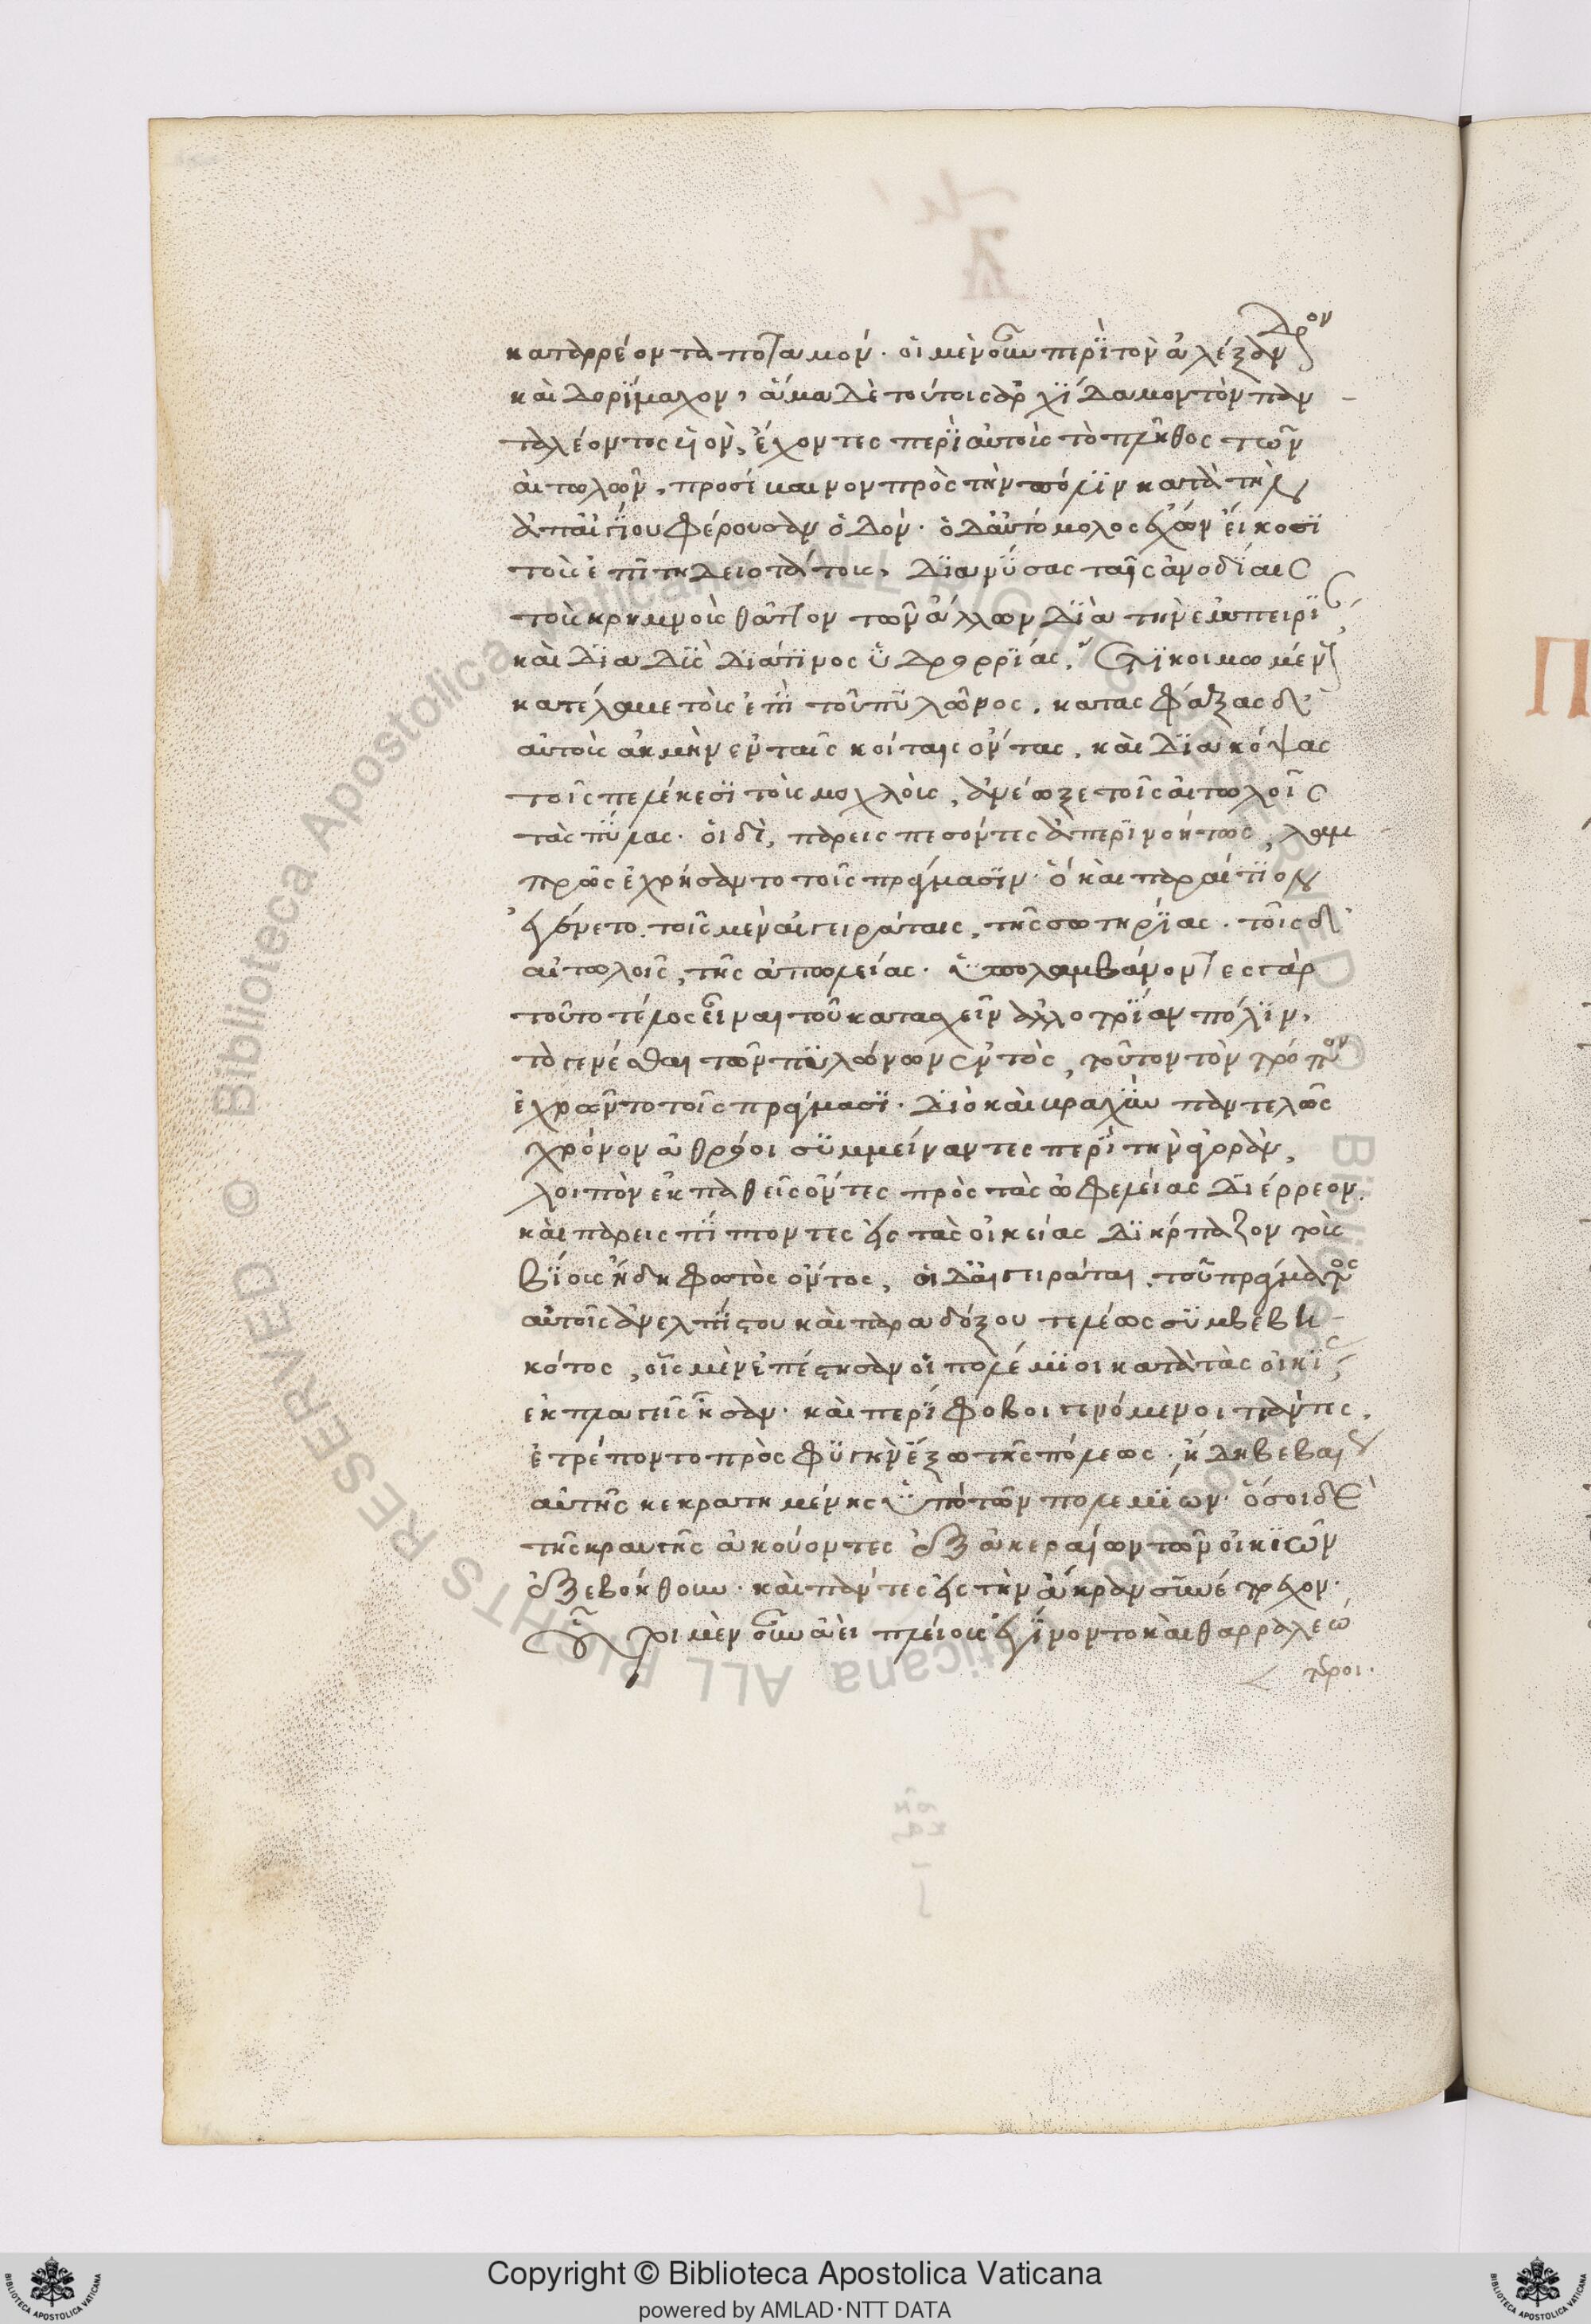 καταρρέοντα ποταμόν. οἱ μὲν οὖν περὶ τὸν ἀλέξανδρον
καὶ δορίμαχον, ἅμα δὲ τούτοις ἀρχίδαμον τὸν παν
ταλέοντος υἱὸν, ἔχοντες περὶ αὑτοὺς τὸ πλῆθος τῶν
αἰτωλῶν, προσέβαινον πρὸς τὴν πόλιν κατὰ τὴν
ἀπαιγίου φέρουσαν ὁδόν. ὁ δ' αὐτόμολος ἔχων εἴκοσι
τοὺς ἐπιτηδειοτάτους, διανύσας ταῖς ἀνοδίαις
τοὺς κρημνοὺς θᾶττον τῶν ἄλλων διὰ τὴν ἐμπειρί
καὶ διαδὺς διά τινος ὑδρορρίας, ἔτι κοιμωμέν
κατέλαβε τοὺς ἐπὶ τοῦ πυλῶνος. κατασφάξας δ'
αὐτοὺς ἀκμὴν ἐν ταῖς κοίταις ὄντας, καὶ διακόψας
τοῖς πελέκεσι τοὺς μοχλοὺς, ἀνέωξε τοῖς αἰτωλοῖς
τὰς πύλας. οἱ δὲ, παρεισπεσόντες ἀπερινοήτως, λαμ
πρῶς ἐχρήσαντο τοῖς πράγμασιν. ὃ καὶ παραίτιον
ἐγένετο. τοῖς μὲν αἰγιράταις, τῆς σωτηρίας. τοῖς δ'
αἰτωλοῖς, τῆς ἀπωλείας. ὑπολαμβάνοντες γὰρ
τοῦτο τέλος εἶναι τοῦ κατασχεῖν ἀλλοτρίαν πόλιν,
τὸ γενέσθαι τῶν πυλώνων ἐντὸς, τοῦτον τὸν τρόπον
ἐχρῶντο τοῖς πράγμασι. διὸ καὶ βραχὺν παντελῶς
χρόνον ἀθρόοι συμμείναντες περὶ τὴν ἀγορὰν,
λοιπὸν ἐκπαθεῖς ὄντες πρὸς τὰς ὠφελείας διέρρεον.
καὶ παρεισπίπτοντες εἰς τὰς οἰκείας διήρπαζον τοὺς
βίους ἤδη φωτὸς ὄντος, οἱ δ' αἰγιράται. τοῦ πράγματος
αὐτοῖς ἀνελπίστου καὶ παραδόξου τελέως συμβεβη
κότος, οἷς μὲν ἐπέστησαν οἱ πολέμιοι κατὰ τὰς οἰκίας
ἐκπλαγεῖς ἦσαν. καὶ περίφοβοι γενόμενοι πάντες,
ἐτρέποντο πρὸς φυγὴν ἔξω τῆς πόλεως. ἤδη βεβαίως
αὐτῆς κεκρατημένης ὑπὸ τῶν πολεμίων. ὅσοι δὲ
τῆς κραυγῆς ἀκούοντες ἐξ ἀκεραίων τῶν οἰκιῶν
ἐξεβοήθουν. καὶ πάντες εἰς τὴν ἄκραν συνέτρεχον.
οὗτοι μὲν οὖν ἀεὶ πλείους ἐγίνοντο καὶ θαρραλεώ
τεροι.
Copyright © Biblioteca Apostolica Vaticana
powered by AMLAD·NTT DATA